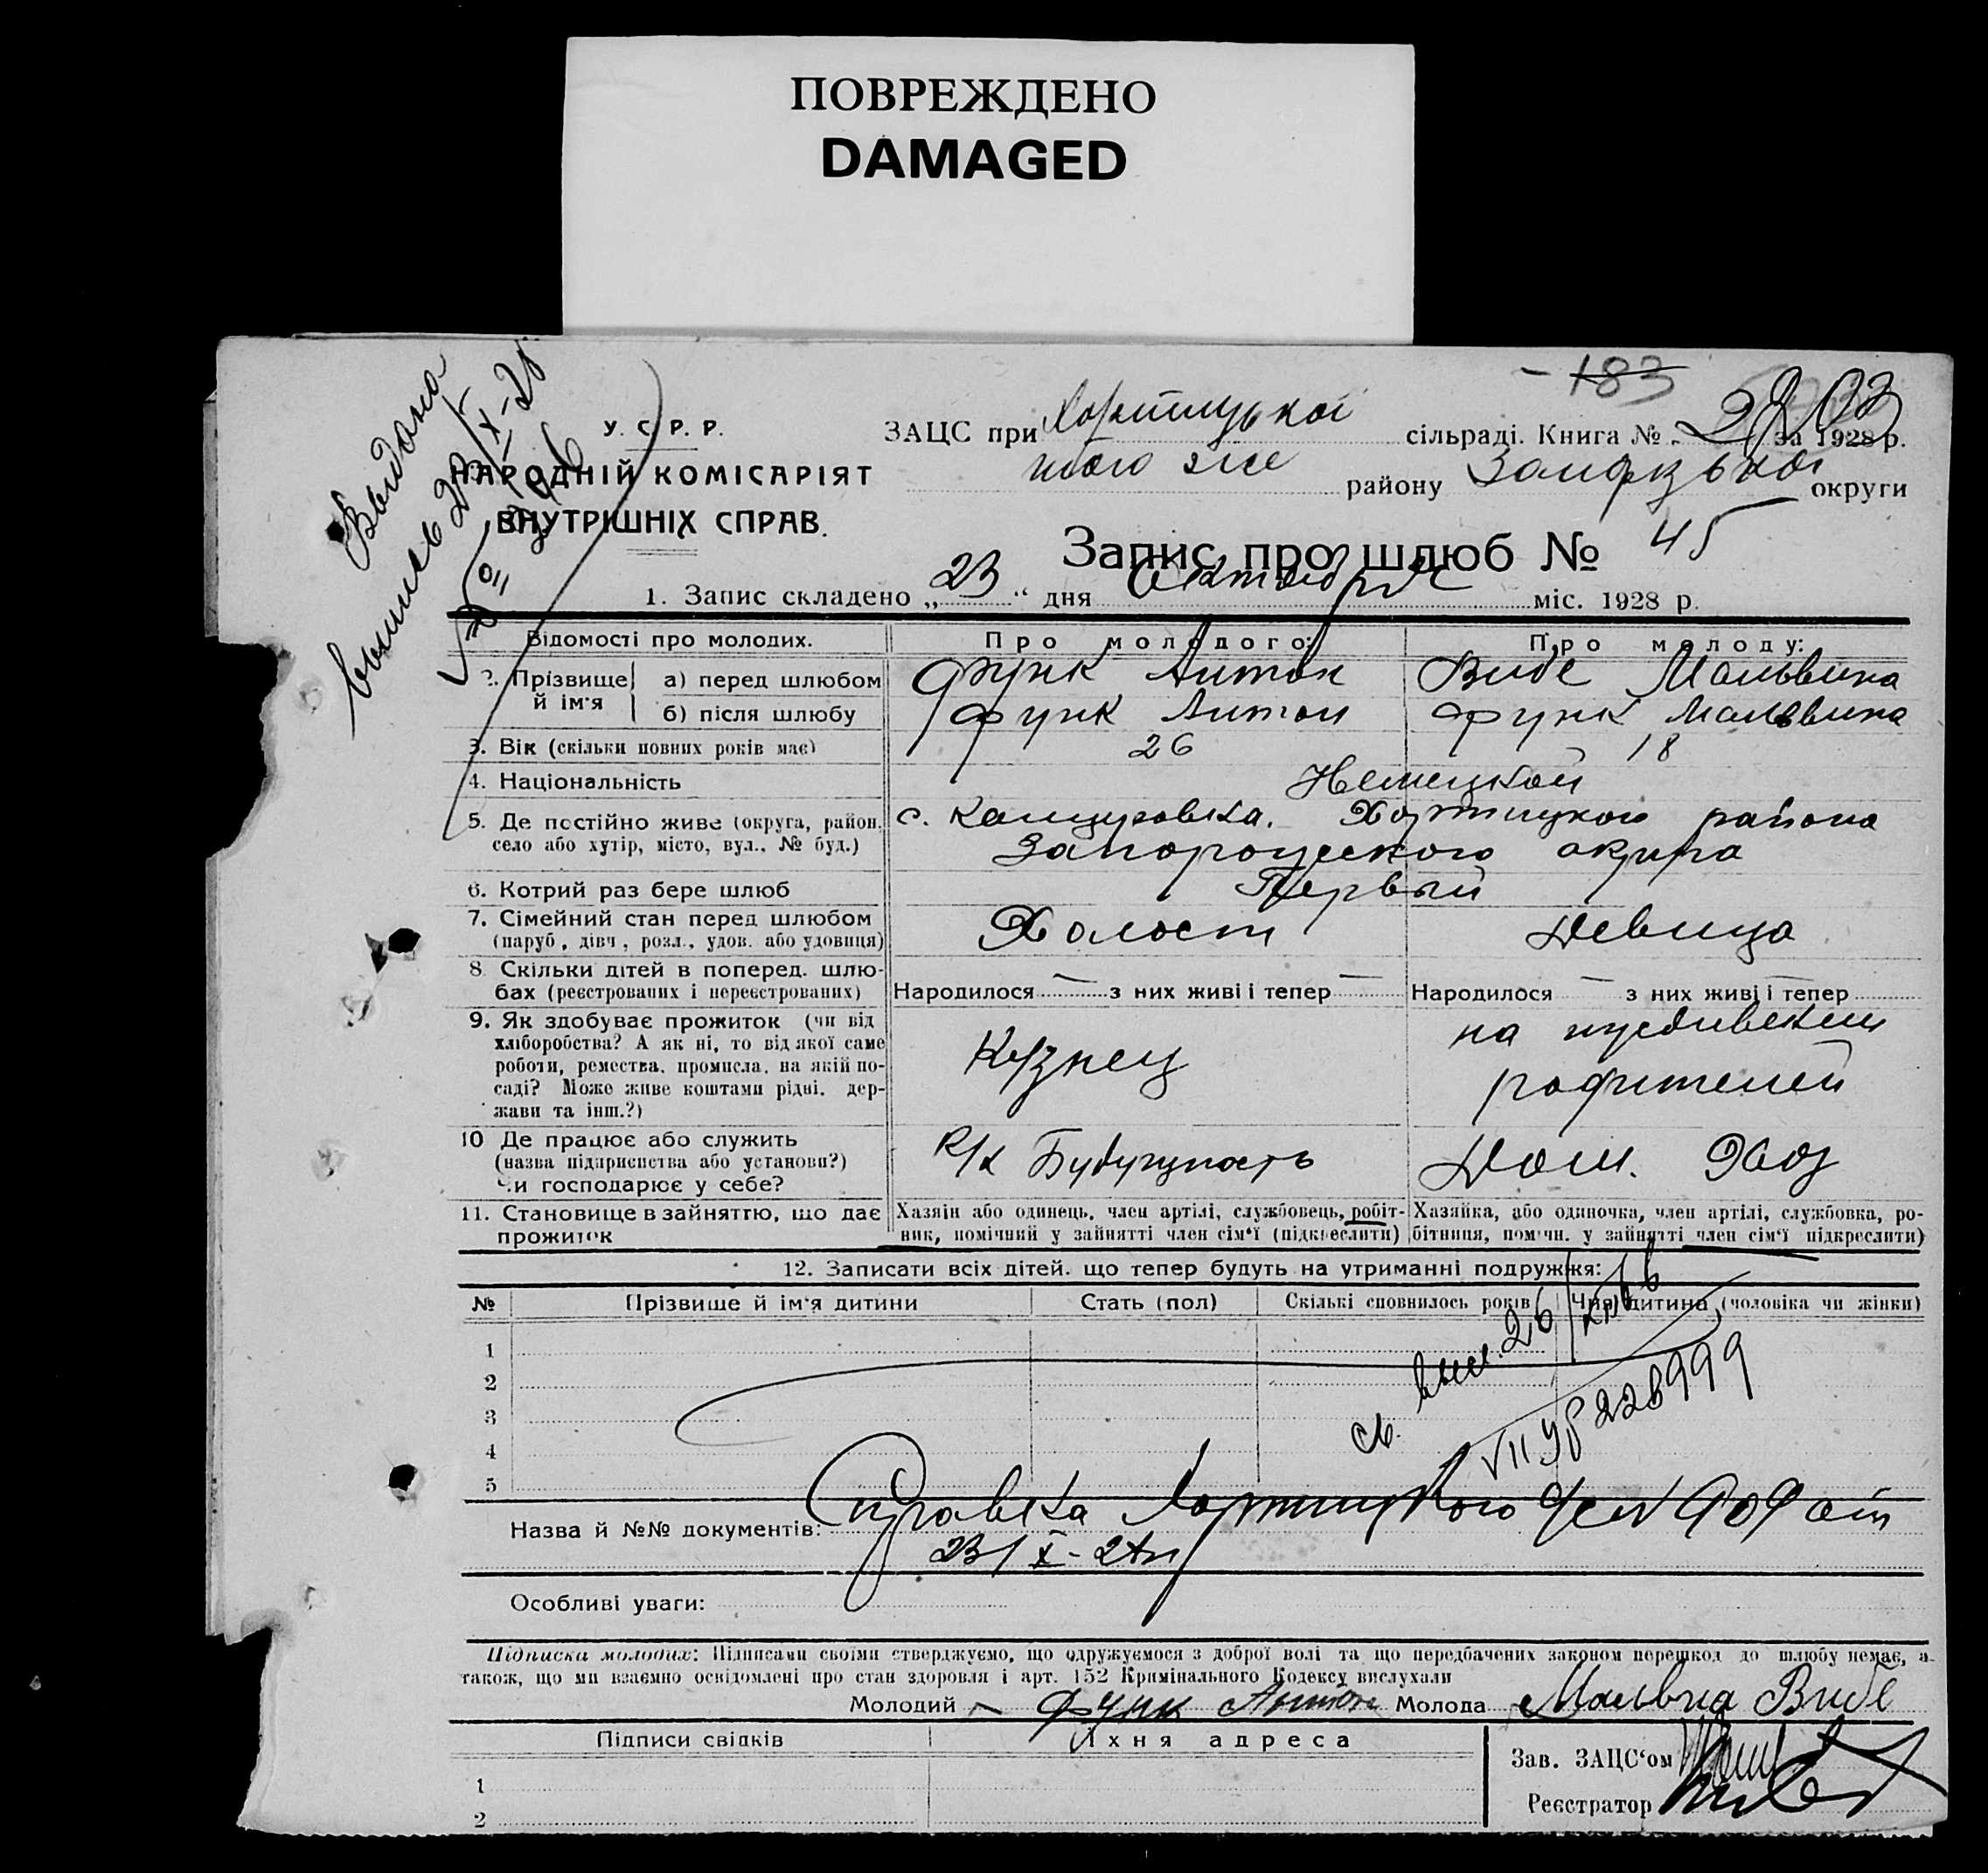 ПОВРЕЖДЕНО
DAMAGED
183
Выдана
выпись 23/X-28
У. С. Р. Р.
НАРОДНІЙ КОМІСАРІЯТ
ВНУТРІШНІХ СПРАВ.
ЗАЦС при Хортицької сільраді. Книга № за 1928 р.
того же району округи
Запис про шлюб № 45
1. Запис складено „23“ дня Октября міс. 1928 р.
Відомості про молодих.
Про молодого:
Про молоду:
2. Прізвище й ім'я
а) перед шлюбом Функ Антон Вибе Мальвина
б) після шлюбу Функ Антон Функ Мальвина
3. Вік (скільки повних років має) 26 18
4. Національність Немецкой
5. Де постійно живе (округа, район, с. Канцеровка. Хортицкого района
село або хутір, місто, вул., № буд.) Запорожского округа
6. Котрий раз бере шлюб Первый
7. Сімейний стан перед шлюбом Холост Девица
(паруб, дівч, розл., удов. або удовиця)
8. Скільки дітей в поперед. шлю-
бах (реєстрованих і нереєстрованих) Народилося — з них живі і тепер — Народилося — з них живі і тепер
9. Як здобуває прожиток (чи від
хліборобства? А як ні, то від якої саме
роботи, ремества, промисла, на якій по-
саді? Може живе коштами рідні, дер-
жави та інш.?)
Кузнец
на иждивении
родителей
10 Де працює або служить
(назва підприємства або установи?)
Чи господарює у себе?
Будущность
Дом. Хоз
11. Становище в зайняттю, що дає
прожиток
Хазяїн або одинець, член артілі, службовець, робіт-
ник, помічний у зайнятті член сім'ї (підкреслити)
Хазяйка, або одиночка, член артілі, службовка, ро-
бітниця, помічн. у зайнятті член сім'ї підкреслити)
12. Записати всіх дітей, що тепер будуть на утриманні подружжя:
№ Прізвище й ім'я дитини Стать (пол) Скількі сповнилось років Чия дитина (чоловіка чи жінки)
1
2
3
4
5
VII 228999
Назва й №№ документів: Справка Хортицкого от
23/X-28
Особливі уваги:
Підписка молодих: Підписами своїми стверджуємо, що одружуємося з доброї волі та що передбачених законом перешкод до шлюбу немає, а
також, що ми взаємно освідомлені про стан здоровля і арт. 152 Кримінального Кодексу вислухали
Молодий Функ Антон Молода Мальвиа Вибе
Підписи свідків Їхня адреса
1
2
Зав. ЗАЦС'ом
Реєстратор